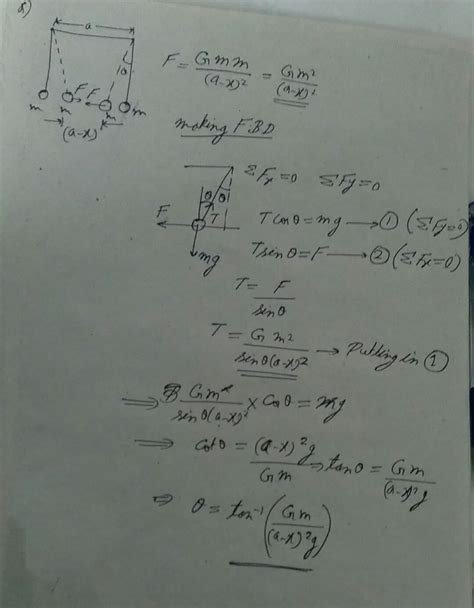 8)
a
θ
F F
m m m m
(a-x)
F = Gmm/(a-x)² = Gm²/(a-x)²
making FBD
ΣFx=0 ΣFy=0
θ θ
F T
mg
Tcosθ = mg → ① (ΣFy=0)
Tsinθ = F → ② (ΣFx=0)
T = F/sinθ
T = Gm²/sinθ(a-x)² → Putting in ①
⇒ Gm²/sinθ(a-x)² × cosθ = mg
⇒ cotθ = (a-x)²g/Gm ⇒ tanθ = Gm/(a-x)²g
⇒ θ = tan⁻¹(Gm/(a-x)²g)